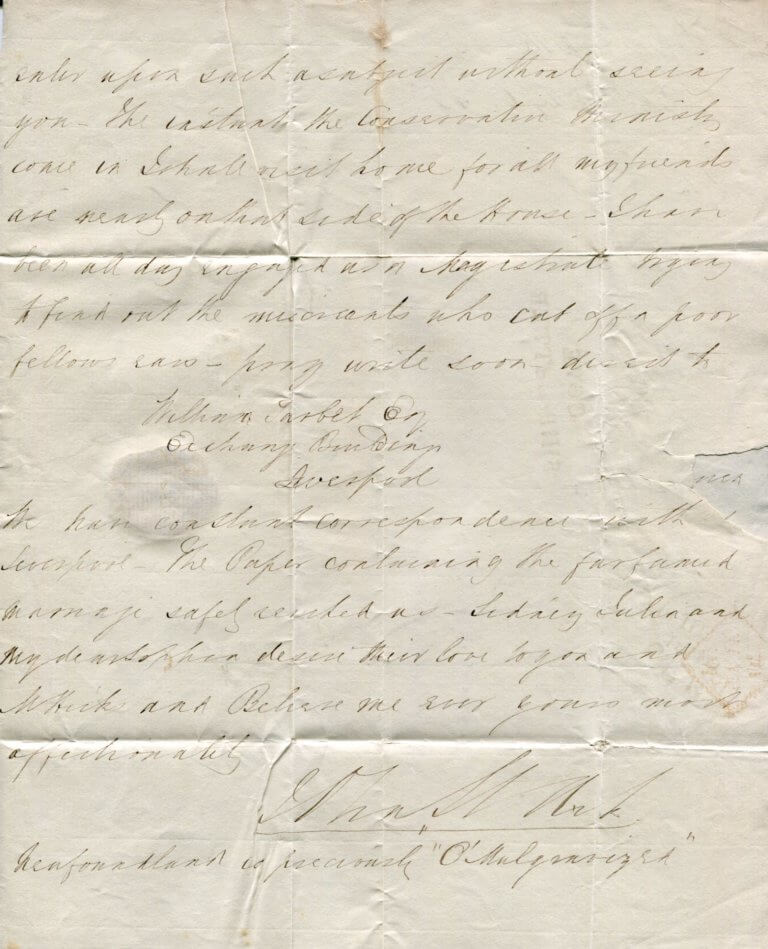 enter upon such a subject without seeing
you - The instant the Conservative Ministry
come in I shall visit home for all my friends
are nearly on that side of the House - I have
been all day engaged as a Magistrate trying
to find out the miscreants who cut off a poor
fellows ears - pray write soon - direct to
William Tarbet Esq
Exchange Buildings
Liverpool
We have constant correspondence with
Liverpool - The Paper containing the farfamed
marriage safely reached us - Sidney Julia and
My dear Sophia desire their love to you and
and Believe me ever yours most
affectionately
John Stark
Newfoundland is preciously "O'Mulgravized"